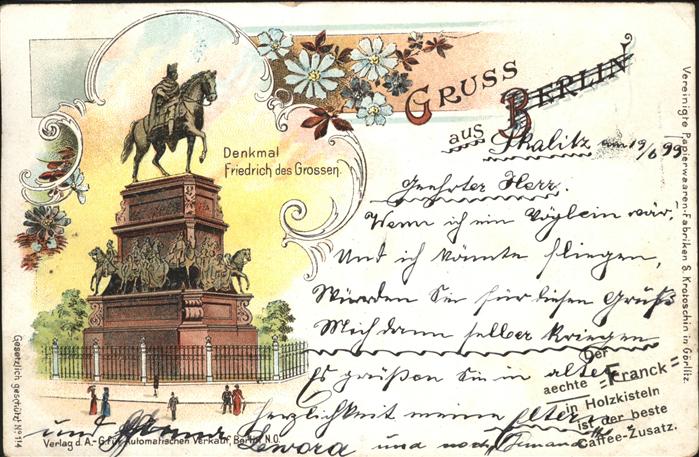 GRUSS
aus BERLIN
Skalitz am 19/6 99
Denkmal
Friedrich des Grossen.
Geehrter Herr.
Wenn ich ein Vöglein wär,
Und ich könnte fliegen,
Würden Sie für diesen Gruß
Mich dann selber kriegen
Es grüßen Sie in alter
Herzlichkeit meine Eltern
und und noch Jemand
Der
aechte =Franck=
in Holzkisteln
ist der beste
Caffee-Zusatz.
Verlag d. A.-G. für Automatischen Verkauf, Berlin N.O.
Gesetzlich geschützt No 114
Vereinigte Papierwaaren-Fabriken S. Krotoschin in Görlitz.